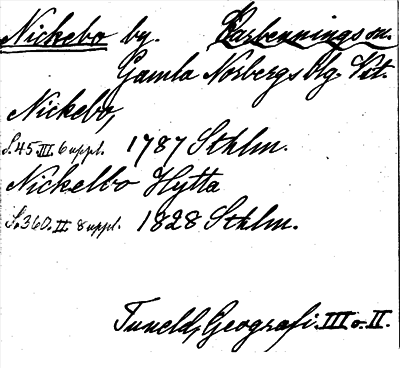 Nickebo by. Karbennings sn.
Gamla Norbergs blg. Vst.
Nickebo,
S. 45 III 6 uppl. 1787 Sthlm.
Nickelbo Hytta
S. 360. II 8 uppl. 1828 Sthlm.
Tuneld, Geografi. III o. II.